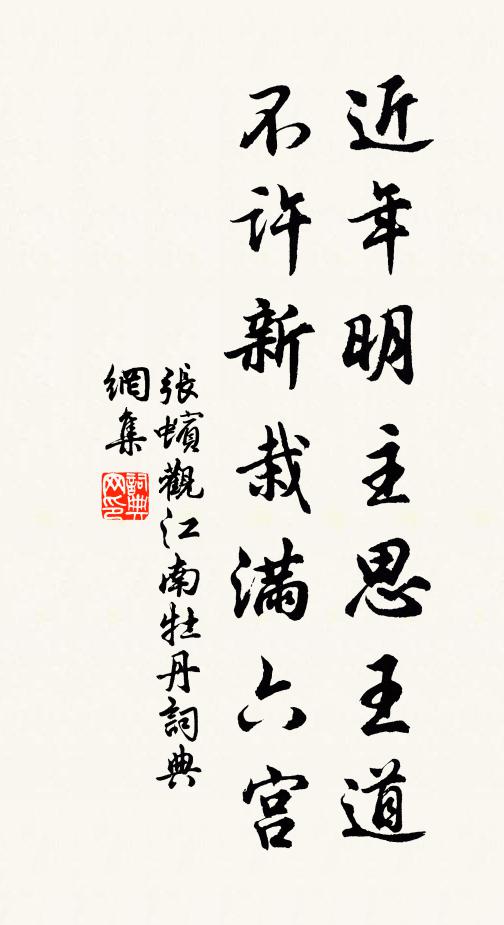 近年明主思王道
不许新栽满六宫
張蠙觀江南牡丹詞典
網集
詞典網印